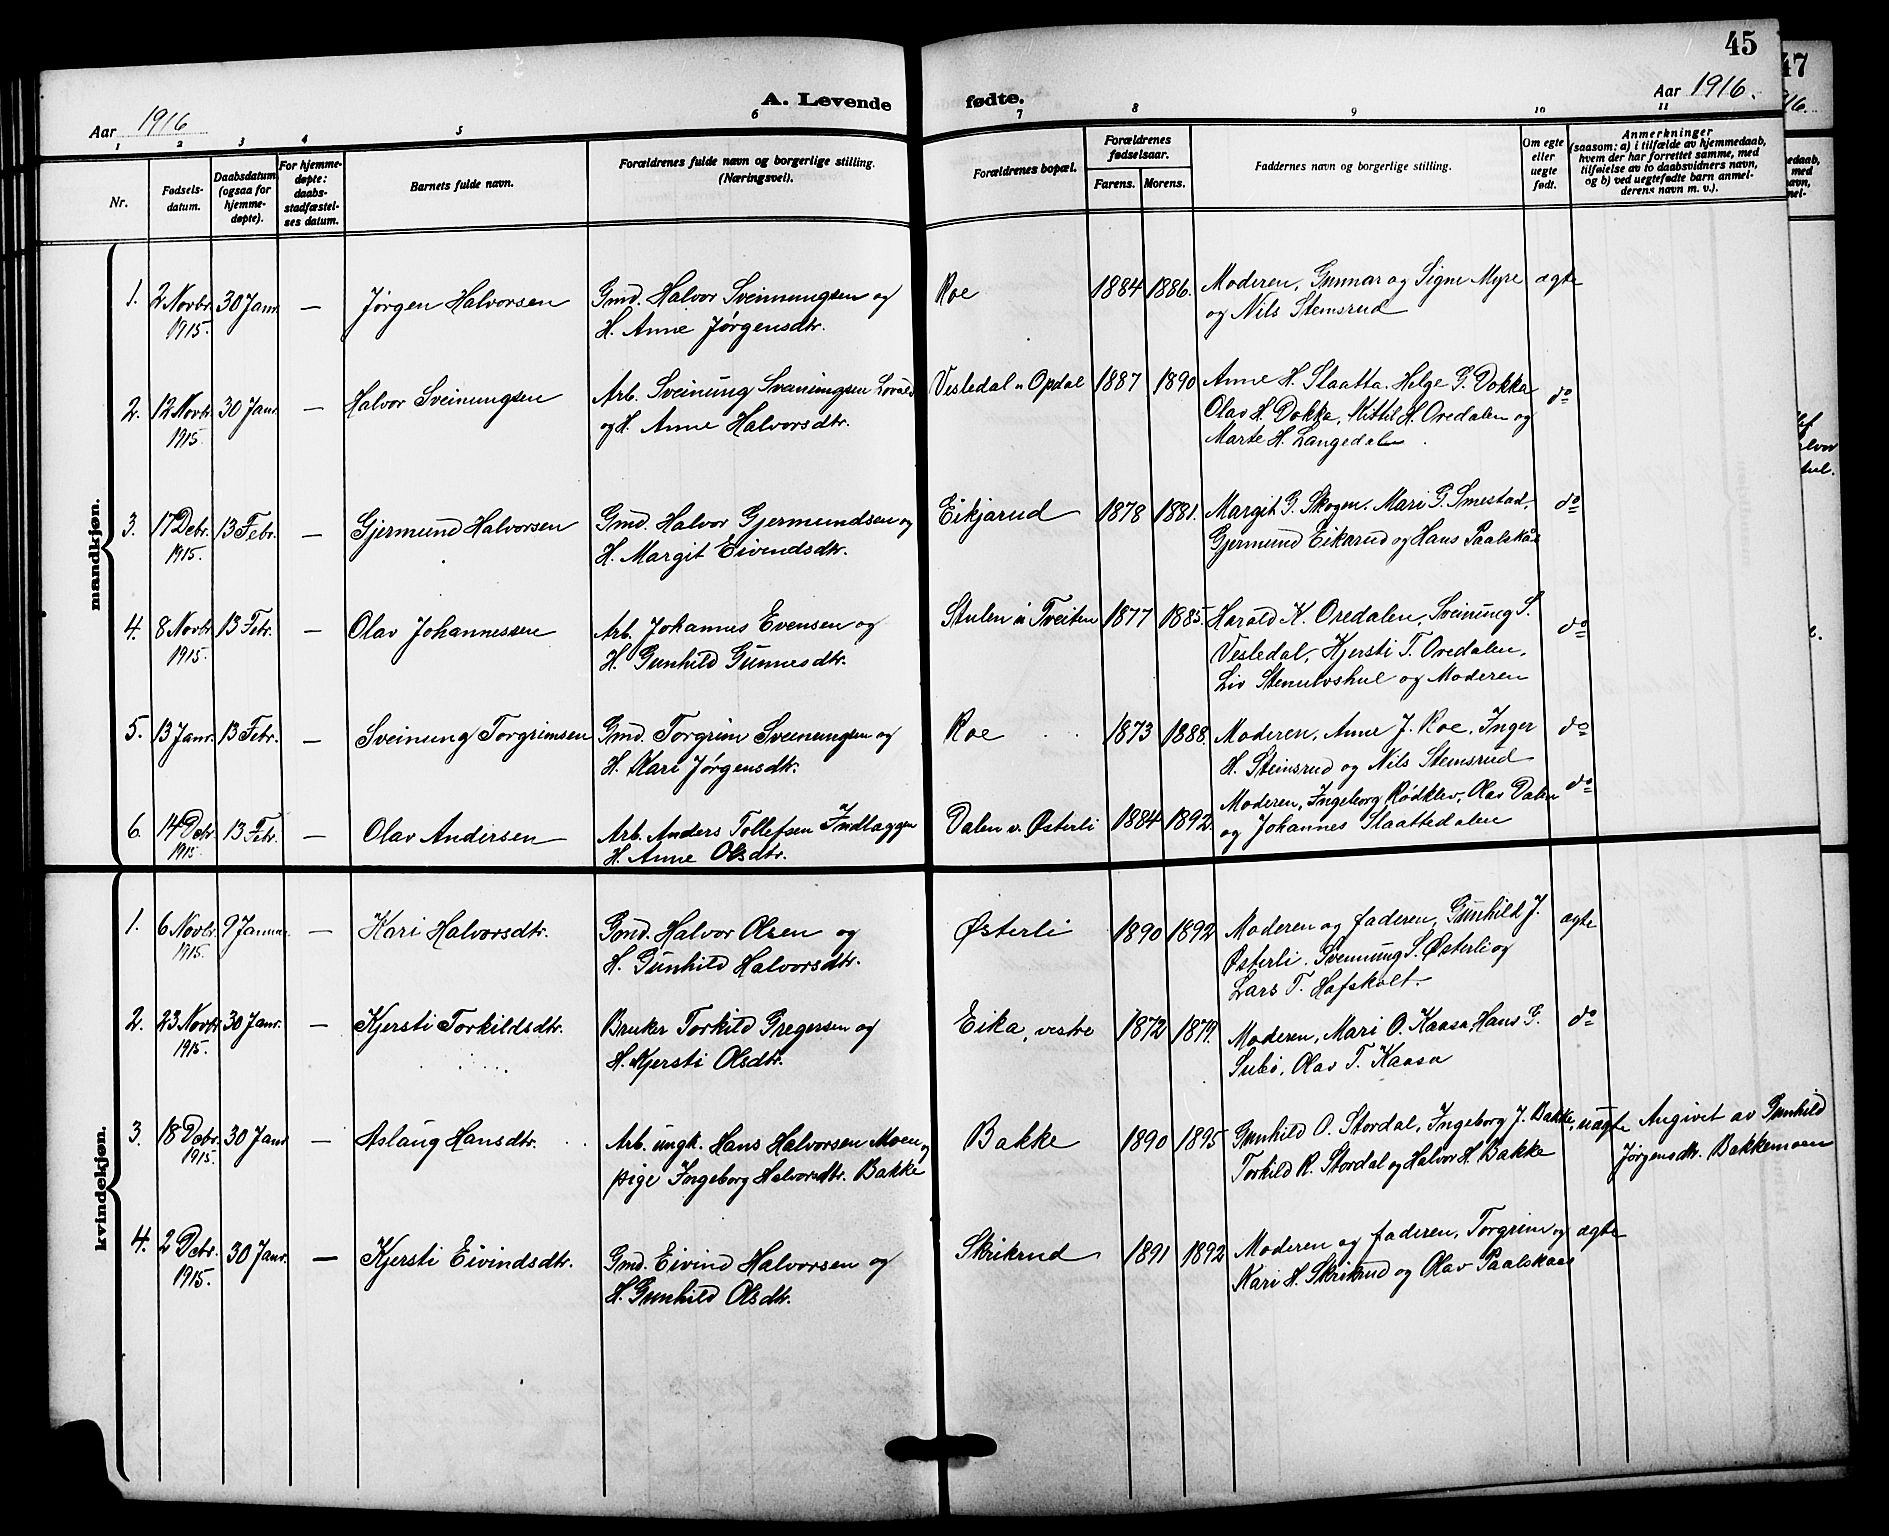 45
A. Levende fødte.
Aar 1916
Aar 1916.
1 2 3 4 5 6 7 8 9 10 11
Nr.
Fødsels-
datum.
Daabsdatum
(ogsaa for
hjemme-
døpte).
For hjemme-
døpte:
daabs-
stadfæstel-
ses datum.
Barnets fulde navn.
Forældrenes fulde navn og borgerlige stilling.
(Næringsvei).
Forældrenes bopæl.
Forældrenes
fødselsaar.
Farens. Morens.
Faddernes navn og borgerlige stilling.
Om egte
eller
uegte
født.
Anmerkninger
(saasom: a) i tilfælde av hjemmedaab,
hvem der har forrettet samme, med
tilføielse av to daabsvidners navn,
og b) ved uegtefødte barn anmel-
derens navn m. v.).
mandkjøn.
1. 2 Novbr. 30 Janr. — Jørgen Halvorsen Gmd. Halvor Sveinungsen og Roe 1884 1886. Moderen, Gunnar og Signe Myre ægte
1915. H. Anne Jørgensdtr. og Nils Stemsrud
2. 12 Novbr. 30 Janr. — Halvor Sveinungsen Arb. Sveinung Sveinungsen Vesledal u Opdal 1887 1890 Anne H. Slaatta. Helge G. Dokka do
1915. og H. Anne Halvorsdtr. Olav H. Dokka, Kittil H. Oredalen og
Marte H. Langedalen.
3. 17 Debr. 13 Febr. — Gjermund Halvorsen Gmd. Halvor Gjermundsen og Eikjarud 1878 1881. Margit G. Skogen. Mari G. Smestad, do
1915. H. Margit Eivendsdtr. Gjermund Eikarud og Hans Paalskås
4. 8 Novbr. 13 Febr. — Olav Johannessen Arb. Johannes Evensen og Stulen u Tveiten 1877 1885. Harald K. Oredalen, Sveinung S. do
1915. H. Gunhild Gunnesdtr. Vesledal, Kjersti T. Oredalen,
Liv og Moderen
5. 13 Janr. 13 Febr. — Sveinung Torgrimsen Gmd. Torgrim Sveinungsen og Roe 1873 1888. Moderen, Anne J. Roe, Inger do
H. Kari Jørgensdtr. H. Steinsrud og Nils Stemsrud
6 14 Debr. 13 Febr. — Olav Andersen Arb. Anders Tollefsen Indlaggen Dalen v. Østerli 1884 1892. Moderen, Ingeborg Rødklev, Olav Dalen do
1915. H. Anne Olsdtr. og Johannes Slaattedalen
kvindekjøn.
1. 6 Novbr. 9 Januar. — Kari Halvorsdtr. Gmd. Halvor Olsen og Østerli 1890 1892 Moderen og faderen, Gunhild J. ægte
1915. H. Gunhild Halvorsdtr. Østerli. Svennung S. Østerli og
Lars T. Hafskolt.
2. 23 Novbr. 30 Janr. — Kjersti Torkildsdtr. Bruker Torkild Gregersen og Eika, vestre 1872 1879. Moderen, Mari O. Kaasa, Hans G. do
1915. H. Kjersti Olsdtr. Subø, Olav T. Kaasa
3. 18 Debr. 30 Janr — Aslaug Hansdtr. Arb. ungk. Hans Halvorsen Moen og Bakke 1890 1895 Gunhild O. Stordal, Ingeborg J. Bakke, uægte Angivet av Gunhild
1915. pige Ingeborg Halvorsdtr. Bakke Torkild R. Stordal og Halvor H. Bakke Jørgensdtr. Bakkemoen
4. 2 Debr. 30 Janr. — Kjersti Eivindsdtr. Gmd. Eivind Halvorsen og Skrikrud 1891 1892 Moderen og faderen, Torgrim og ægte
1915. H. Gunhild Olsdtr. Kari H. Skrikrud og Olav Paalskaas
47